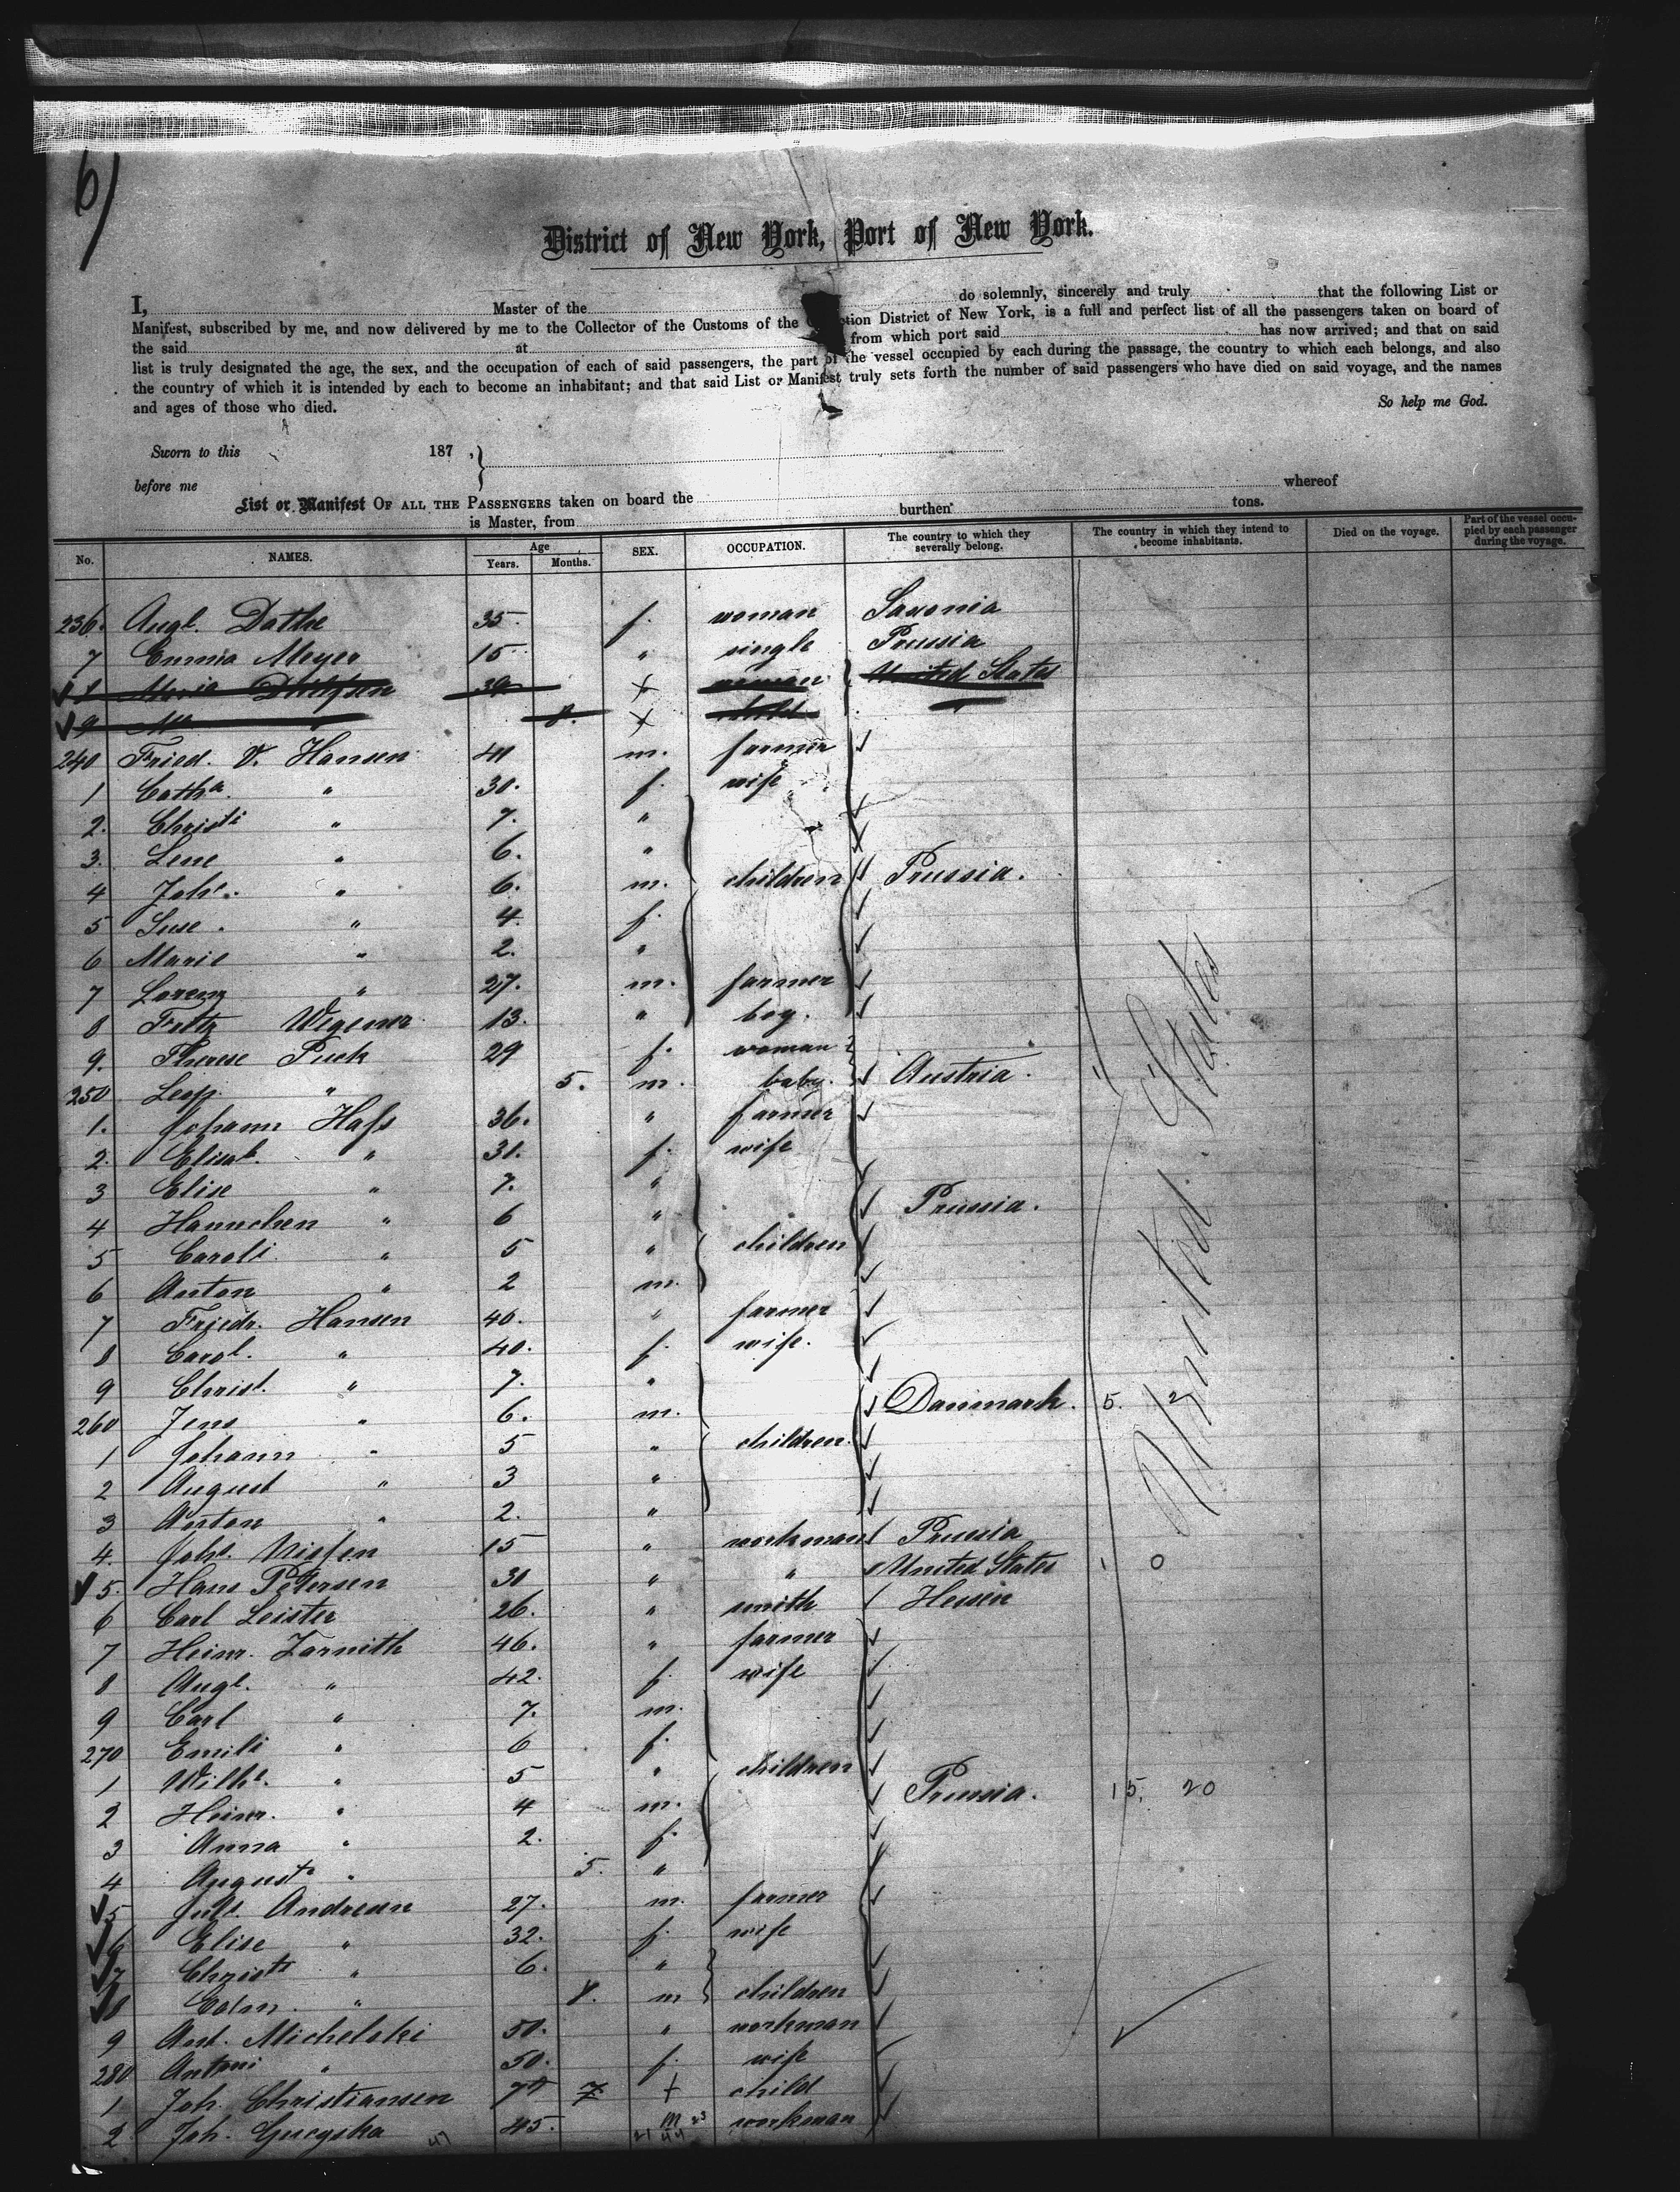 6/
District of New York, Port of New York.
I, Master of the do solemnly, sincerely and truly that the following List or
Manifest, subscribed by me, and now delivered by me to the Collector of the Customs of the ction District of New York, is a full and perfect list of all the passengers taken on board of
the said at from which port said has now arrived; and that on said
list is truly designated the age, the sex, and the occupation of each of said passengers, the part of the vessel occupied by each during the passage, the country to which each belongs, and also
the country of which it is intended by each to become an inhabitant; and that said List or Manifest truly sets forth the number of said passengers who have died on said voyage, and the names
and ages of those who died. So help me God.
Sworn to this 187 ,
before me
List or Manifest OF ALL THE PASSENGERS taken on board the whereof
is Master, from burthen tons.
No. NAMES. Age Years. Months. SEX. OCCUPATION. The country to which they severally belong. The country in which they intend to become inhabitants. Died on the voyage. Part of the vessel occupied by each passenger during the voyage.
236. Augt. Dathe 35 f. woman Saxonia
7 Emma Meyer 15 " single Prussia
8 Maria 39 woman United States
9 " 8. child
240 Fried. V. Hansen 41 m. farmer
1 Catha. " 30. f. wife
2. Christi " 7. "
3. Lene " 6. "
4 Johs. " 6. m. children Prussia.
5 Suse. " 4. f.
6 Marie " 2. "
7 Lorenz " 27. m. farmer
8 Fritz Wegener 13. " boy.
9. Therese Puck 29 f. woman
250 Leop. " 5. m. baby. Austria.
1. Johann Hafs 36. " farmer
2. Elisab. " 31. f. wife
3 Elise " 7. "
4 Hannchen " 6 " Prussia.
5 Caroli. " 5 " children
6 Anton " 2 m.
7 Friedr. Hansen 40. " farmer
8 Carol. " 40. f. wife.
9 Christ. " 7. "
260 Jens " 6. m. Danmark. 5. 2
1 Johann " 5 " children.
2 August " 3 "
3 Anton " 2. "
4. Johs. Nissen 15 " workman Prussia
5. Hans Petersen 30 " " United States 1 0
6 Carl Leister 26. " smith Hessen
7 Heinr. Zarnith 46. " farmer
8 Augt. " 42. f. wife
9 Carl " 7. m.
270 Emili " 6 f.
1 Wilhe. " 5 " children
2 Heinr. " 4 m. Prussia. 15. 20
3 Anna " 2. f.
4 Auguste " 5. "
5 Juls. Andresen 27. m. farmer
6 Elise " 32. f. wife
7 Christe " 6. "
8 Edm. " 8. m children
9 Ant. Michelski 50. " workman
280 Antoni " 50. f. wife
1 Joh. Christiansen 7 child
2 Joh. 45. m workman
United States